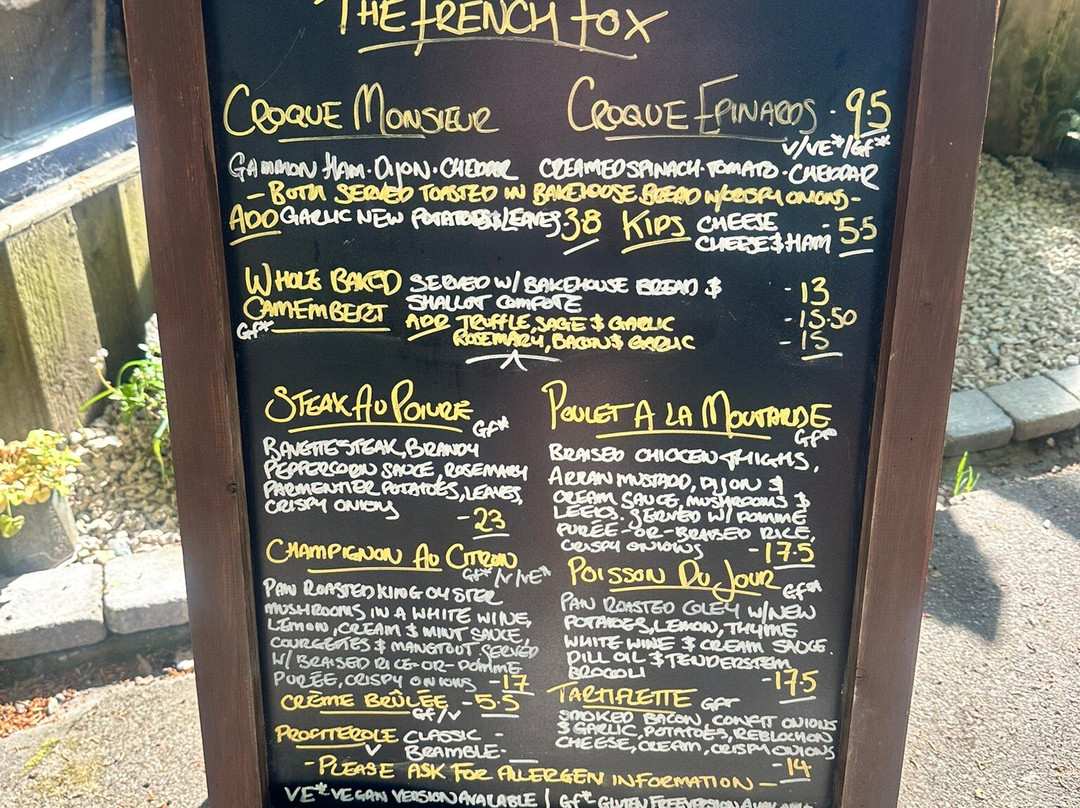 THE FRENCH FOX
CROQUE MONSIEUR CROQUE EPINARDS · 9.5
V/VE*/GF*
GAMMON HAM · DIJON · CHEDDAR CREAMED SPINACH · TOMATO · CHEDDAR
- BOTH SERVED TOASTED IN BAKEHOUSE BREAD W/CRISPY ONIONS -
ADD GARLIC NEW POTATOES & LEAVES · 3.8 KIDS CHEESE - 5.5
CHEESE & HAM
WHOLE BAKED SERVED W/ BAKEHOUSE BREAD & - 13
CAMEMBERT SHALLOT COMPOTE
GF* ADD TRUFFLE, SAGE & GARLIC - 15.50
ROSEMARY, BACON & GARLIC - 15
STEAK AU POIVRE
GF*
BAVETTE STEAK, BRANDY
PEPPERCORN SAUCE, ROSEMARY
PARMENTIER POTATOES, LEAVES,
CRISPY ONIONS
- 23
POULET A LA MOUTARDE
GF*
BRAISED CHICKEN THIGHS,
ARRAN MUSTARD, DIJON &
CREAM SAUCE, MUSHROOMS &
LEEKS. SERVED W/ POMME
PURÉE -OR- BRAISED RICE,
CRISPY ONIONS - 17.5
CHAMPIGNON AU CITRON
GF*/V/VE*
PAN ROASTED KING OYSTER
MUSHROOMS IN A WHITE WINE,
LEMON, CREAM & MINT SAUCE,
COURGETTES & MANGTOUT. SERVED
W/ BRAISED RICE -OR- POMME
PURÉE, CRISPY ONIONS - 17
POISSON DU JOUR GF*
PAN ROASTED COLEY W/NEW
POTATOES, LEMON, THYME
WHITE WINE & CREAM SAUCE.
DILL OIL & TENDERSTEM
BROCOLI - 17.5
CRÈME BRÛLÉE - 5.5
GF/V
PROFITEROLE CLASSIC -
V BRAMBLE -
TARTIFLETTE GF*
SMOKED BACON, CONFIT ONIONS
& GARLIC, POTATOES, REBLOCHON
CHEESE, CREAM, CRISPY ONIONS
- 14
- PLEASE ASK FOR ALLERGEN INFORMATION -
VE* VEGAN VERSION AVAILABLE | GF* GLUTEN FREE VERSION AVAILABLE